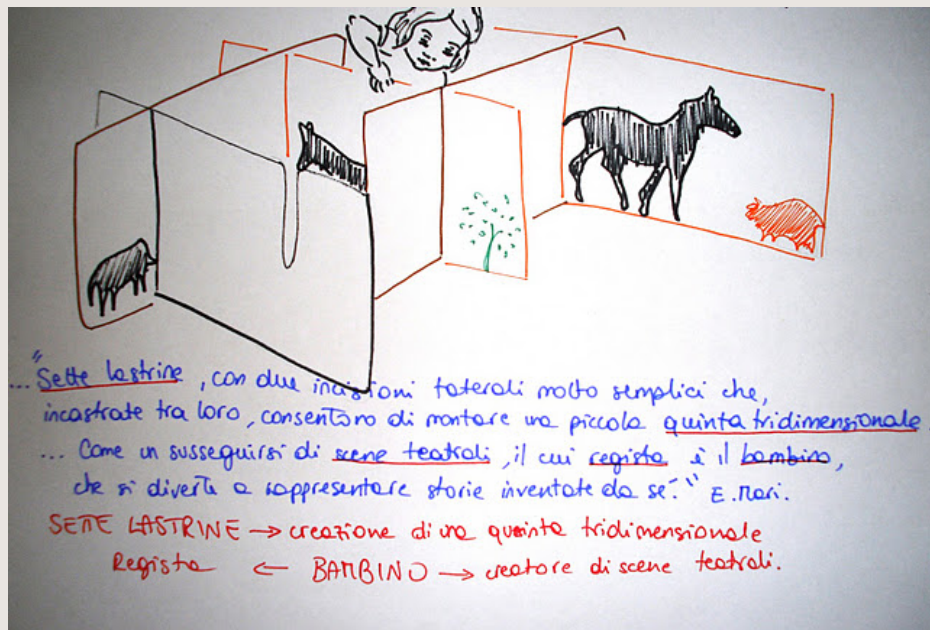 ..."Sette lastrine, con due incisioni laterali molto semplici che,
incastrate tra loro, consentono di montare una piccola quinta tridimensionale.
... Come un susseguirsi di scene teatrali, il cui regista è il bambino,
che si diverte a rappresentare storie inventate da sé." E. Mari.
SETTE LASTRINE → creazione di una quinta tridimensionale
Regista ← BAMBINO → creatore di scene teatrali.